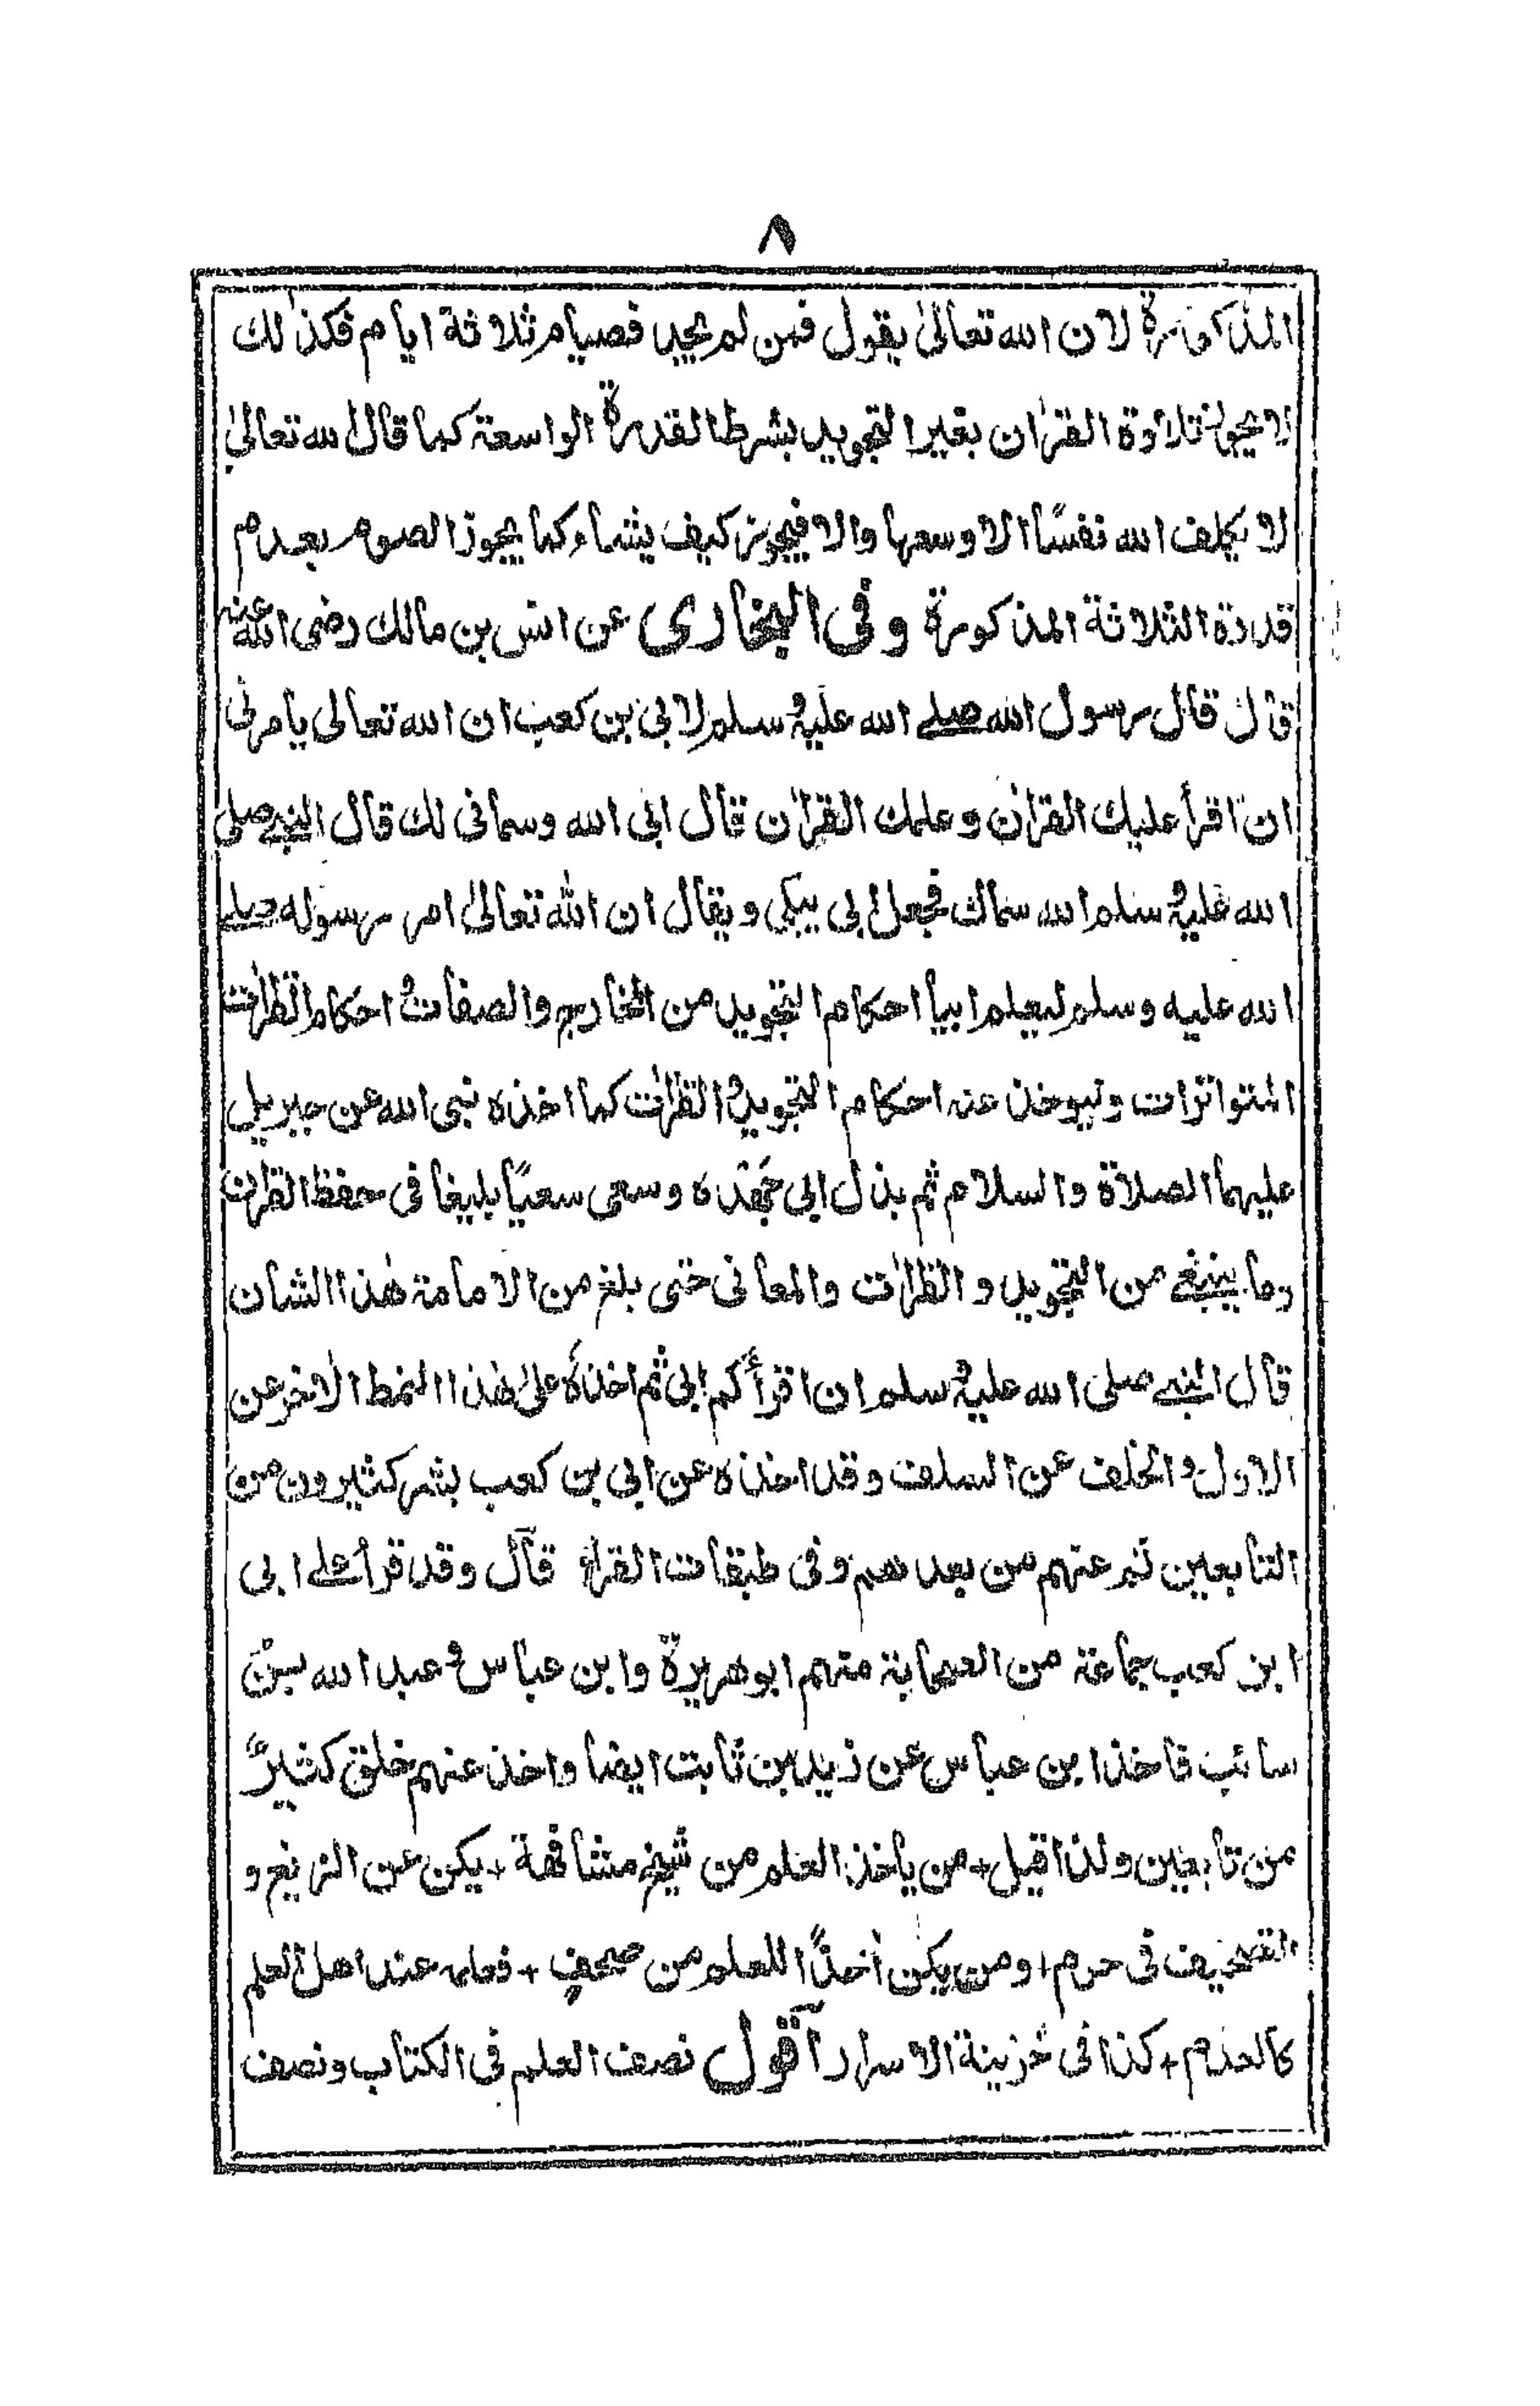 ٨
المذكورة لان الله تعالىٰ يقول فمن لم يجد فصيام ثلاثة ايام فكذٰلك
لا يجوز تلاوة القرٰان بغير التجويد بشرط القدرة الواسعة كما قال الله تعالىٰ
لا يكلف الله نفسًا الا وسعها والا فيجوز كيف يشاء كما يجوز الصوم بعدم
قدرة الثلاثة المذكورة وفى البخارى عن انس بن مالك رضى الله عنه
قال قال رسول الله صلے الله عليه وسلم لابى بن كعب ان الله تعالى يامرنى
ان اقرأ عليك القراٰن وعلمك القراٰن قال ابى الله وسمانى لك قال النبے صلى
الله عليه وسلم الله سماك فجعل ابى يبكى ويقال ان الله تعالىٰ امر رسوله صلے
الله عليه وسلم ليعلم ابيا احكام التجويد من المخارج والصفات و احكام القراٰت
المتواترات وليوخذ عنه احكام التجويد و القراٰت كما اخذه نبى الله عن جبريل
عليهما الصلاة والسلام ثم بذل ابى جهده وسعى سعيًا بليغا فى حفظ القراٰن
وما ينبغے من التجويد و القراٰت والمعانى حتى بلغ من الامامة هٰذا الشان
قال النبے صلى الله عليه وسلم ان اقرأكم ابى ثم اخذه علىٰ هٰذا النمط الاٰخر عن
الاول و الخلف عن السلف وقد اخذه عن ابى بن كعب بشر كثيرون من
التابعين ثم عنهم من بعدهم وفى طبقات القراء قال وقد قرأ علے ابى
ابن كعب جماعة من الصحابة منهم ابو هريرة وابن عباس و عبد الله بن
سائب فاخذ ابن عباس عن زيد بن ثابت ايضا واخذ عنهم خلق كثيرٌ
من تابعين ولذا قيل + من ياخذ العلم من شيخ مشافهة + يكن عن الزيغ و
التصحيف فى حرم + ومن يكن اٰخذًا للعلم من صحفٍ + فعلمه عند اهل العلم
كالعدم + كذا فى خزينة الاسرار اقول نصف العلم فى الكتاب ونصف